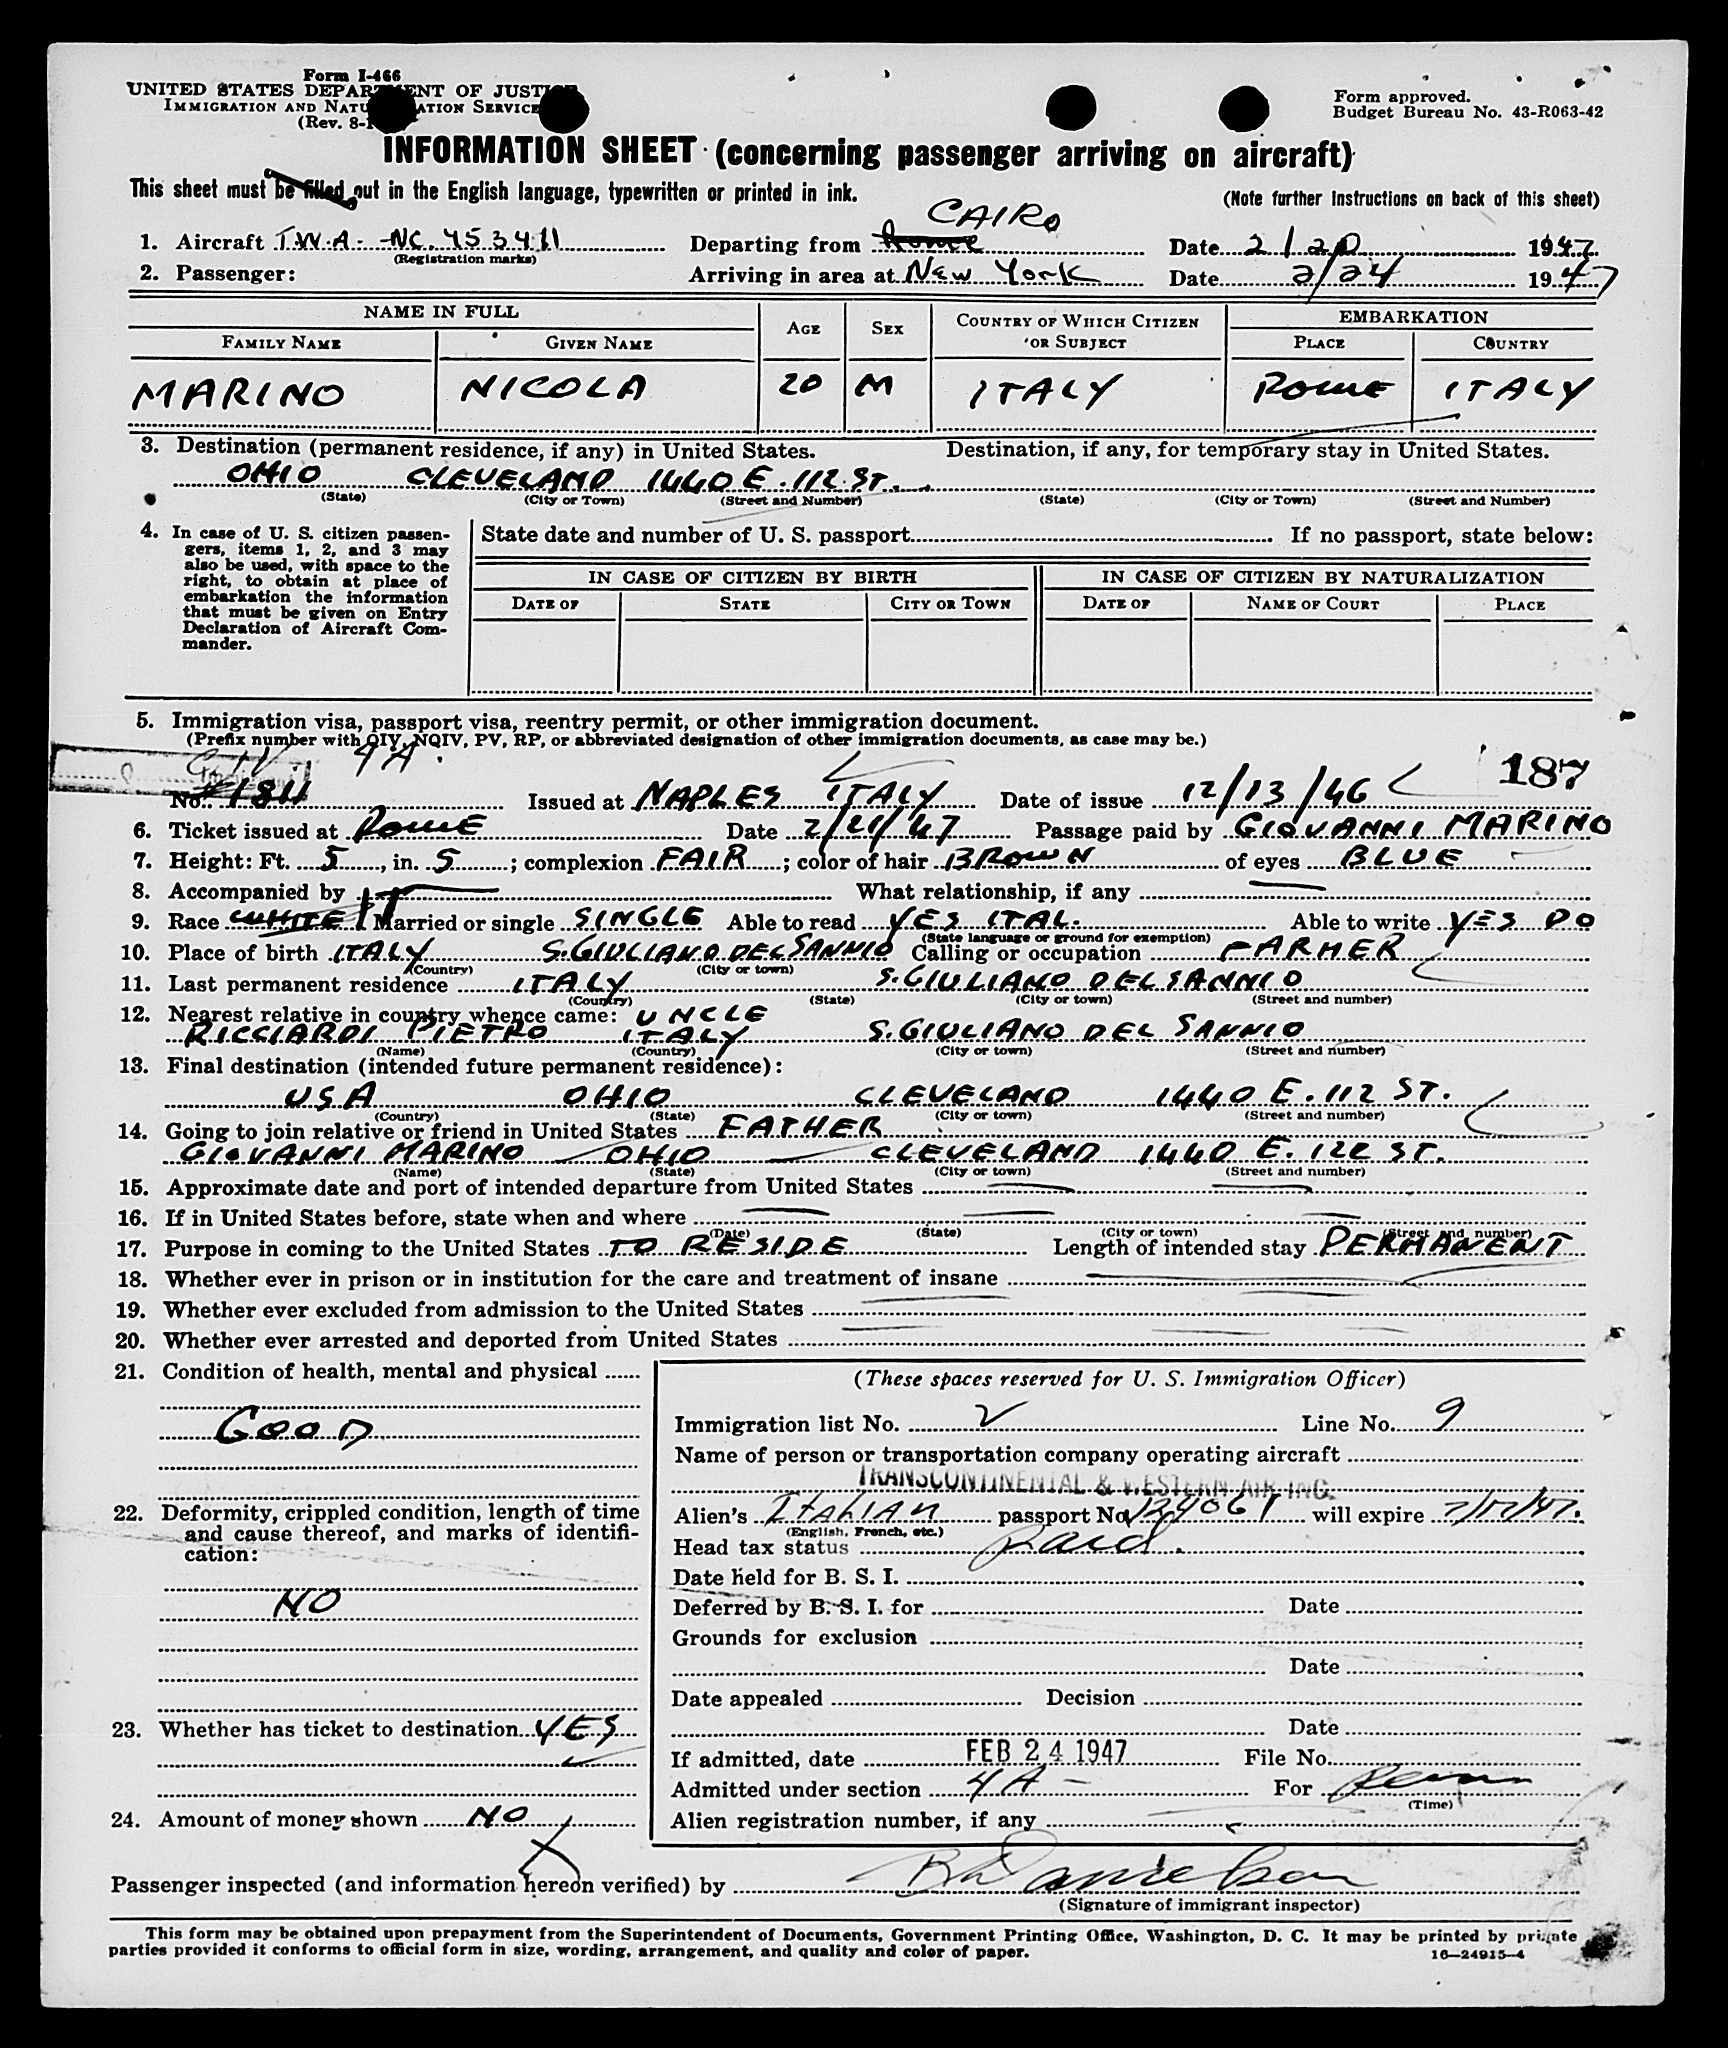 Form I-466
UNITED STATES DEPARTMENT OF JUSTICE
IMMIGRATION AND NATURALIZATION SERVICE
(Rev. 8-1
Form approved.
Budget Bureau No. 43-R063-42
INFORMATION SHEET (concerning passenger arriving on aircraft)
This sheet must be filled out in the English language, typewritten or printed in ink.
(Note further Instructions on back of this sheet)
CAIRO
1. Aircraft T.W.A. - NC. 453411 Departing from Rome Date 2/20 1947
(Registration marks)
2. Passenger: Arriving in area at New York Date 2/24 1947
NAME IN FULL AGE SEX COUNTRY OF WHICH CITIZEN OR SUBJECT EMBARKATION
FAMILY NAME GIVEN NAME PLACE COUNTRY
MARINO NICOLA 20 M ITALY ROME ITALY
3. Destination (permanent residence, if any) in United States. Destination, if any, for temporary stay in United States.
OHIO CLEVELAND 1440 E. 112 ST.
(State) (City or Town) (Street and Number) (State) (City or Town) (Street and Number)
4. In case of U. S. citizen passen-
gers, items 1, 2, and 3 may
also be used, with space to the
right, to obtain at place of
embarkation the information
that must be given on Entry
Declaration of Aircraft Com-
mander.
State date and number of U. S. passport If no passport, state below:
IN CASE OF CITIZEN BY BIRTH IN CASE OF CITIZEN BY NATURALIZATION
DATE OF STATE CITY OR TOWN DATE OF NAME OF COURT PLACE
5. Immigration visa, passport visa, reentry permit, or other immigration document.
(Prefix number with QIV, NQIV, PV, RP, or abbreviated designation of other immigration documents, as case may be.)
4A 187
No. 1811 Issued at NAPLES ITALY Date of issue 12/13/46
6. Ticket issued at ROME Date 2/21/47 Passage paid by GIOVANNI MARINO
7. Height: Ft. 5, in. 5; complexion FAIR; color of hair BROWN of eyes BLUE
8. Accompanied by What relationship, if any
9. Race WHITE IT Married or single SINGLE Able to read YES ITAL. Able to write YES DO
(State language or ground for exemption)
10. Place of birth ITALY S. GIULIANO DEL SANNIO Calling or occupation FARMER
(Country) (City or town)
11. Last permanent residence ITALY S. GIULIANO DEL SANNIO
(Country) (State) (City or town) (Street and number)
12. Nearest relative in country whence came: UNCLE
RICCIARDI PIETRO ITALY S. GIULIANO DEL SANNIO
(Name) (Country) (City or town) (Street and number)
13. Final destination (intended future permanent residence):
USA OHIO CLEVELAND 1440 E. 112 ST.
(Country) (State) (City or town) (Street and number)
14. Going to join relative or friend in United States FATHER
GIOVANNI MARINO OHIO CLEVELAND 1440 E. 122 ST.
(Name) (State) (City or town) (Street and number)
15. Approximate date and port of intended departure from United States
16. If in United States before, state when and where
(Date) (State) (City or town) (Street and number)
17. Purpose in coming to the United States TO RESIDE Length of intended stay PERMANENT
18. Whether ever in prison or in institution for the care and treatment of insane
19. Whether ever excluded from admission to the United States
20. Whether ever arrested and deported from United States
21. Condition of health, mental and physical
GOOD
22. Deformity, crippled condition, length of time
and cause thereof, and marks of identifi-
cation:
NO
23. Whether has ticket to destination YES
24. Amount of money shown NO
(These spaces reserved for U. S. Immigration Officer)
Immigration list No. 2 Line No. 9
Name of person or transportation company operating aircraft
TRANSCONTINENTAL & WESTERN AIR INC.
Alien's Italian passport No. will expire
(English, French, etc.)
Head tax status paid.
Date held for B. S. I.
Deferred by B. S. I. for Date
Grounds for exclusion
Date
Date appealed Decision
Date
If admitted, date FEB 24 1947 File No.
Admitted under section 4A - For
(Time)
Alien registration number, if any
Passenger inspected (and information hereon verified) by
(Signature of immigrant inspector)
This form may be obtained upon prepayment from the Superintendent of Documents, Government Printing Office, Washington, D. C. It may be printed by private
parties provided it conforms to official form in size, wording, arrangement, and quality and color of paper.
16-24915-4